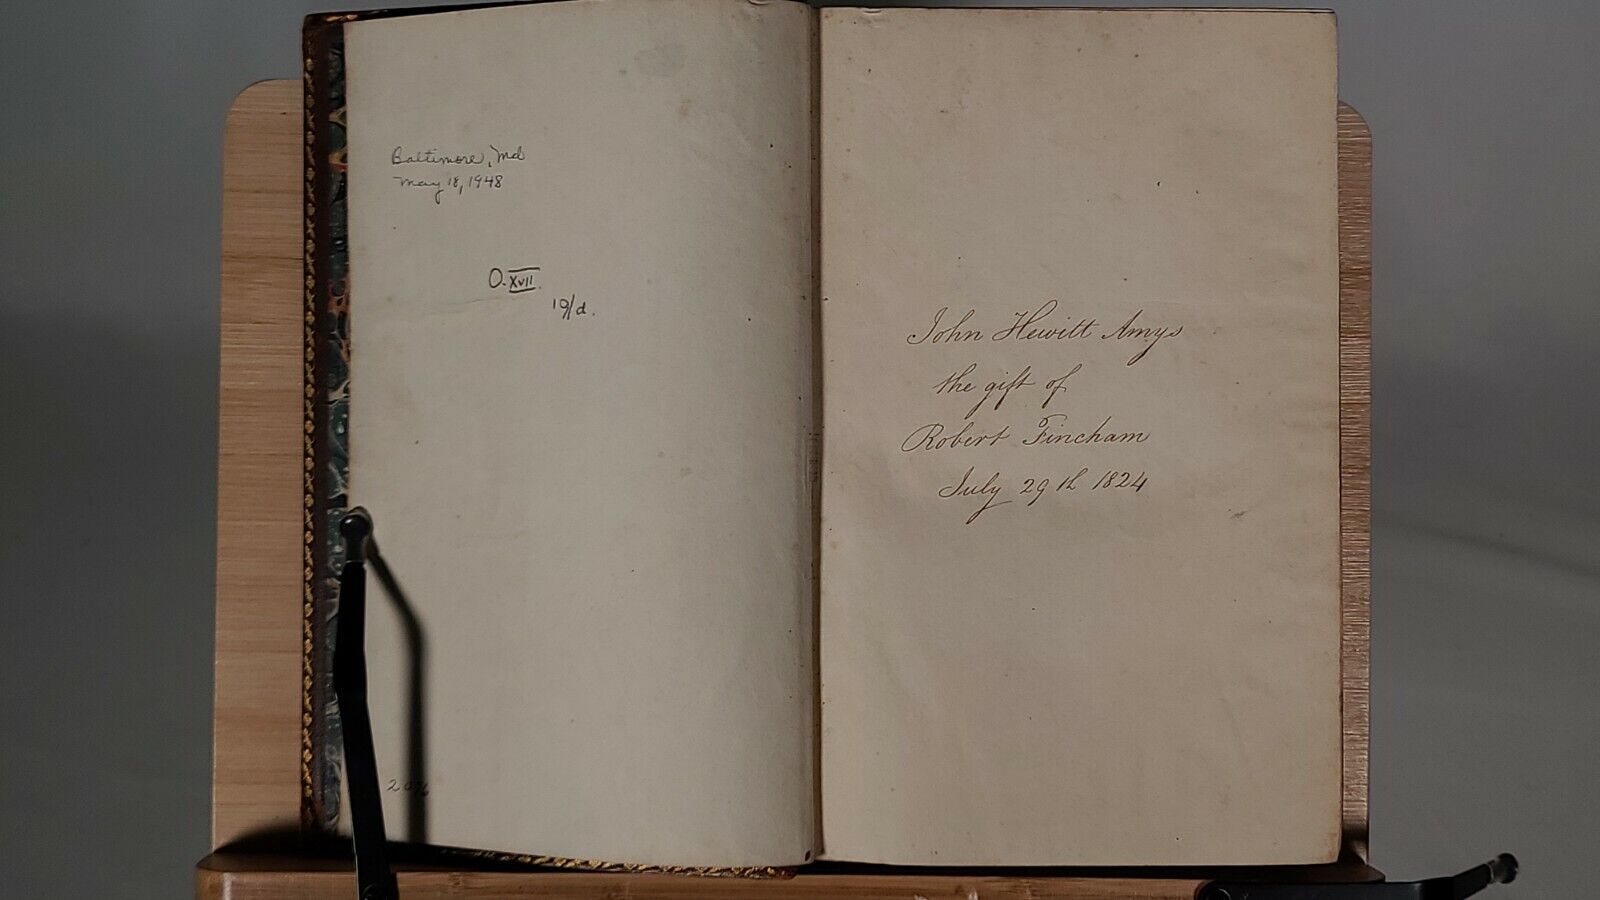 Baltimore, Md
May 18, 1948
O. XVII.
10/d.
John Hewitt Amys
the gift of
Robert Fincham
July 29th 1824